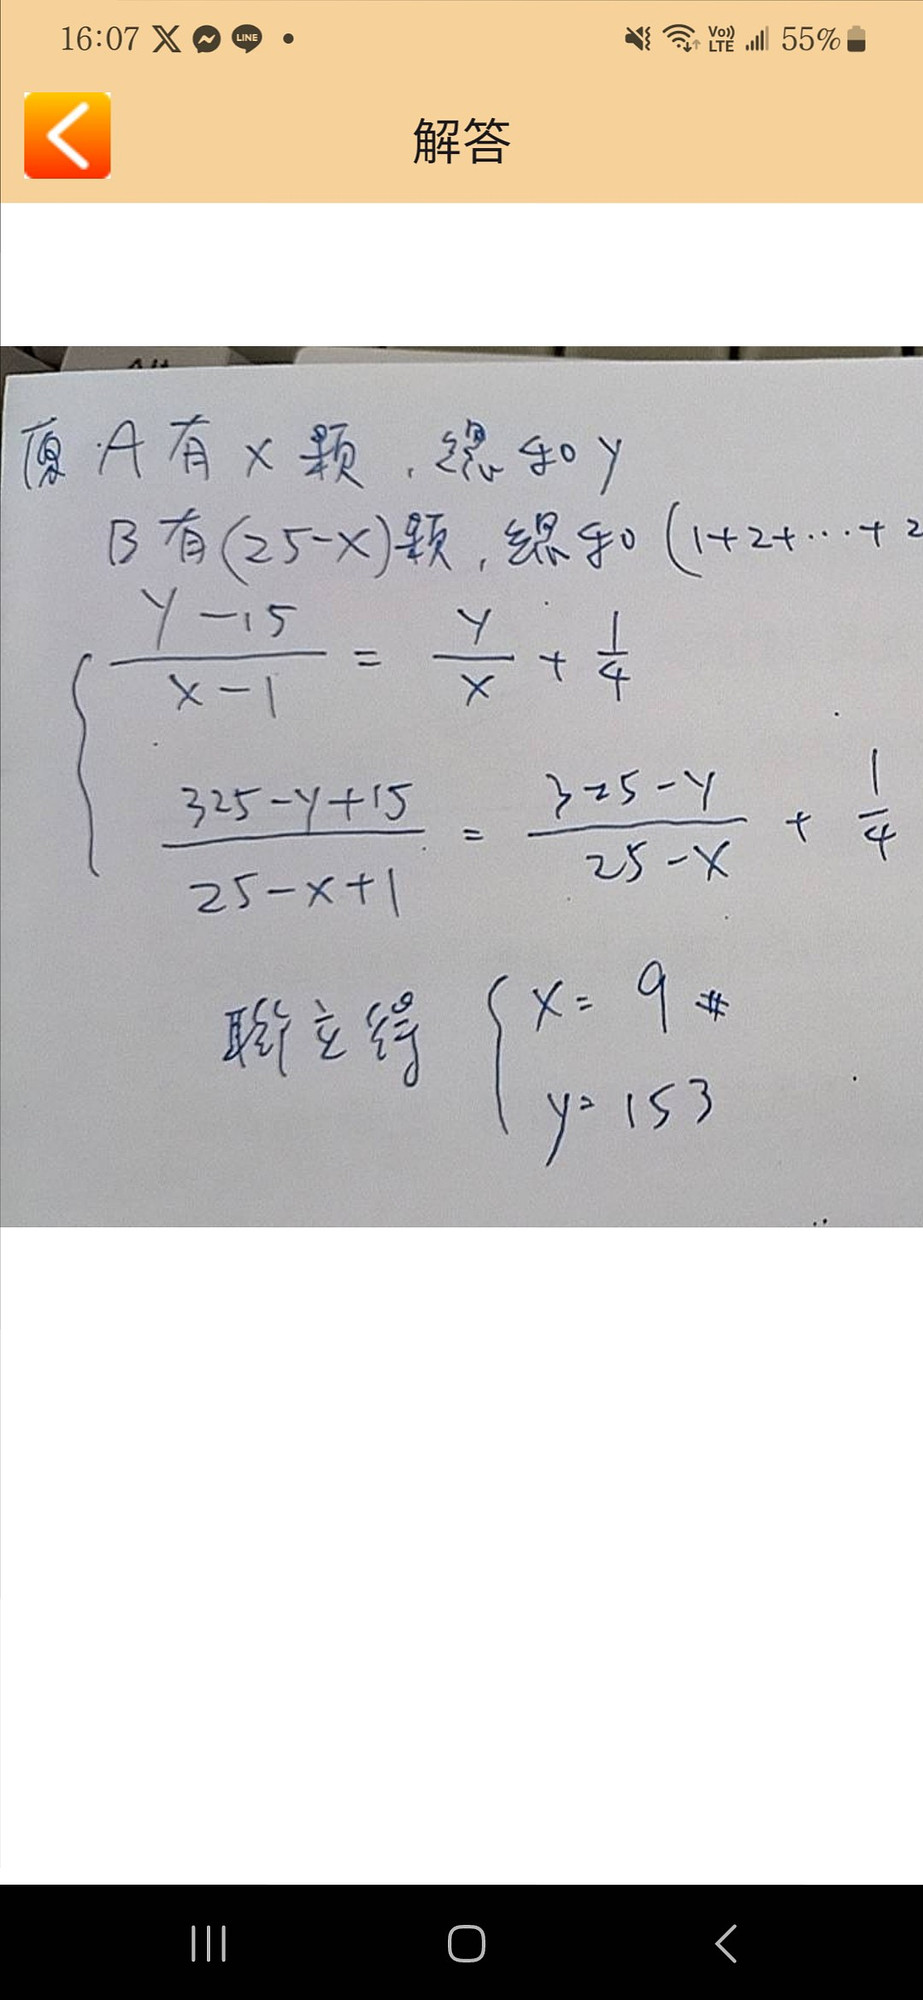 16:07 LINE Vo)) LTE 55%
解答
原 A有x顆,總和y
B有(25-x)顆,總和(1+2+...+2
y-15/x-1 = y/x + 1/4
325-y+15/25-x+1 = 325-y/25-x + 1/4
聯立得 { x= 9 #
y= 153